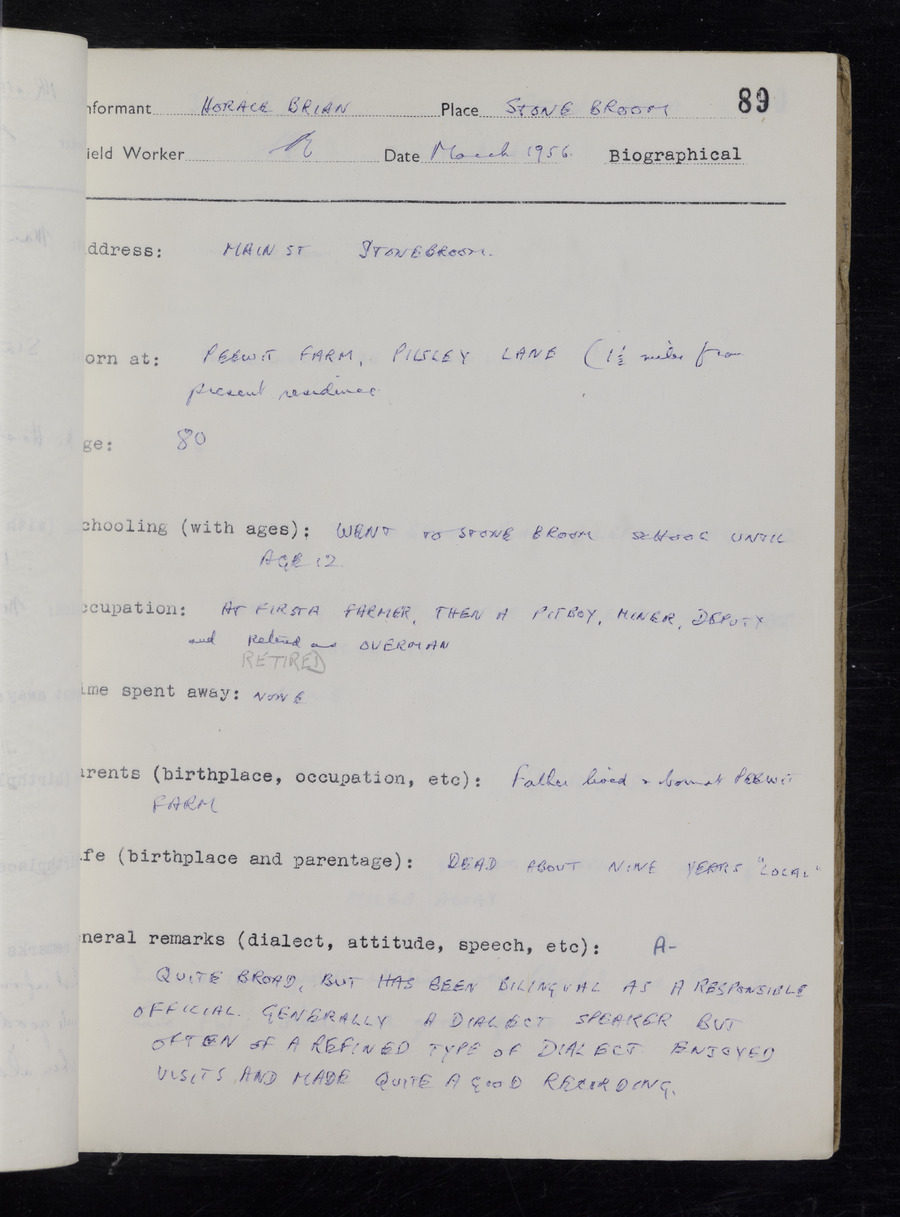 89
nformant HORACE BRIAN Place STONE BROOM
ield Worker Date March 1956. Biographical
ddress: MAIN ST STONEBROOM.
orn at: PEEWIT FARM, PILSLEY LANE (1½ miles from
present residence
ge: 80
chooling (with ages): WENT TO STONE BROOM SCHOOL UNTIL
AGE 12.
ccupation: AT FIRST A FARMER, THEN A PITBOY, MINER, DEPUTY
and Retired as OVERMAN
RETIRED
ime spent away: NONE
rents (birthplace, occupation, etc): Father lived & born at PEEWIT
FARM
fe (birthplace and parentage): DEAD ABOUT NINE YEARS "LOCAL"
neral remarks (dialect, attitude, speech, etc): A-
QUITE BROAD, BUT HAS BEEN BILINGUAL AS A RESPONSIBLE
OFFICIAL. GENERALLY A DIALECT SPEAKER BUT
OFTEN OF A REFINED TYPE OF DIALECT ENJOYED
VISITS AND MADE QUITE A GOOD RECORDING.